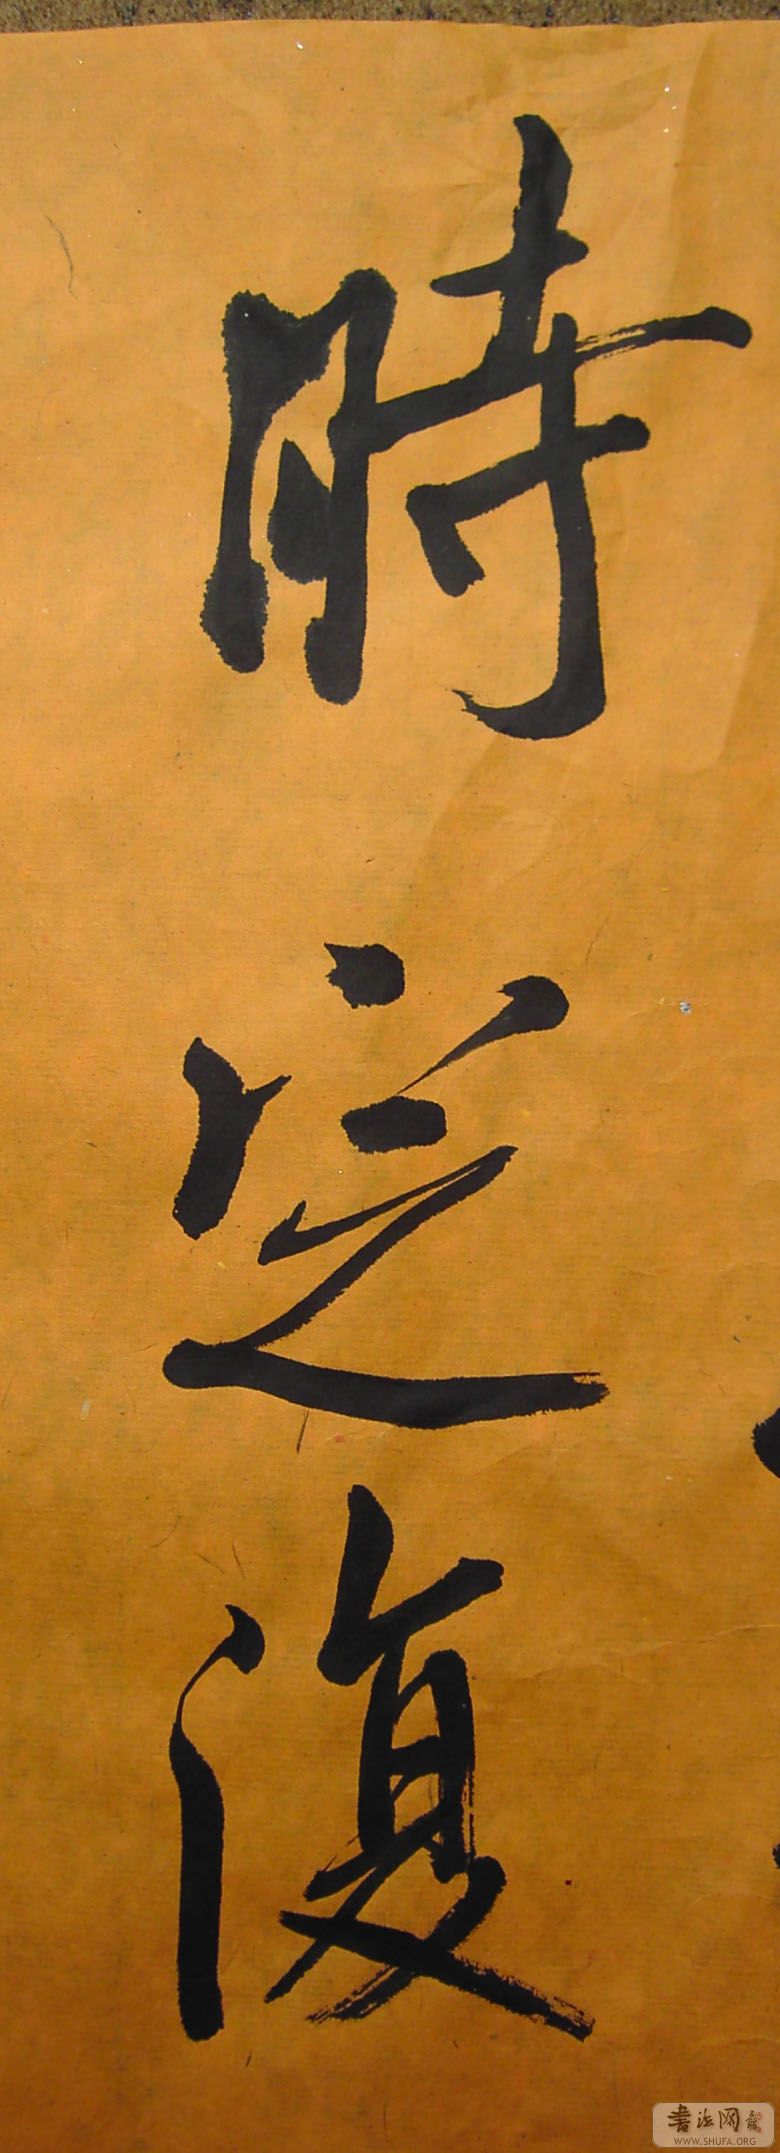 時定復
書法网
WWW.SHUFA.ORG